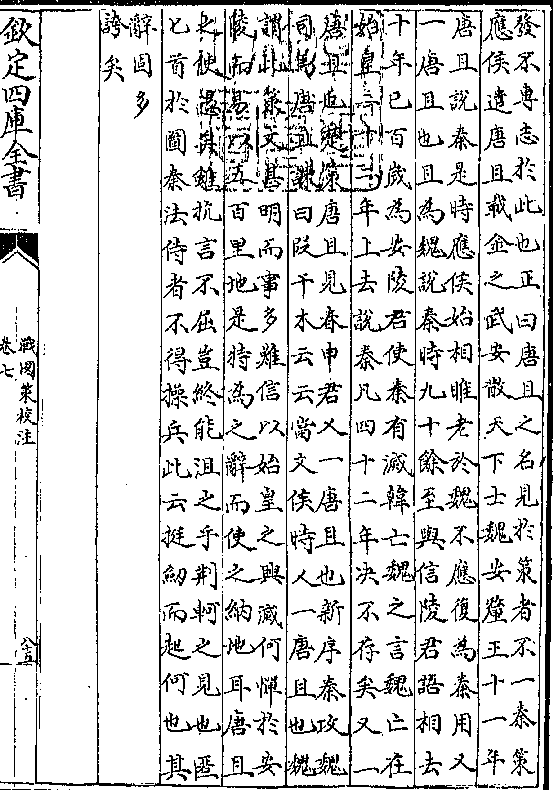 發不專志於此也正曰唐且之名見於策者不一秦策
應侯遣唐且載金之武安散天下士魏安釐王十一年
唐且說秦是時應侯始相睢老於魏不應復為秦用又
一唐且也且為魏說秦時九十餘至與信陵君語相去
十年已百歲為安陵君使秦有滅韓亡魏之言魏亡在
始皇二十二年上去說秦凡四十二年決不存矣又一
唐且也楚策唐且見春申君又一唐且也新序秦攻魏
司馬唐且諫曰段干木云云當文侯時人一唐且也魏
謂此策文甚明而事多難信以始皇之興滅何憚於安
陵而易以五百里地是特為之辭而使之納地耳唐且
之使愚矣雖抗言不屈豈終能沮之乎荆軻之見也匿
匕首於圖秦法侍者不得操兵此云挺劒而起何也其
辭固多
誇矣
欽定四庫全書
戰國策校注
卷七